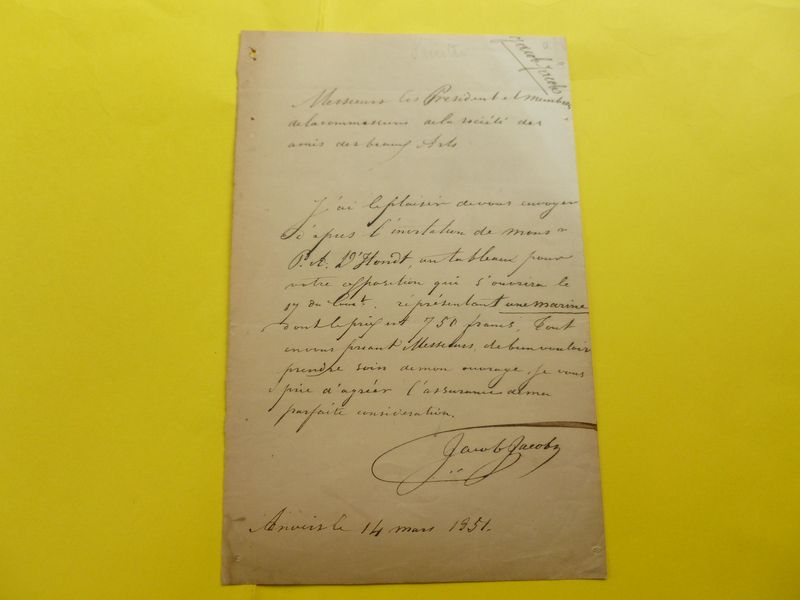 Jacob Jacobs
Messieurs les President et membres
de la commissions de la société des
amis des beaux Arts
J'ai le plaisir de vous envoyer
d'après l'invitation de mons r
P. A. D'Hondt, un tableaux pour
votre opposition qui s'ouvrira le
17 du Cour.t. représentant une marine
dont le prix est 750 francs, Tout
en vous priant Messieurs de bien vouloir
prendre soin de mon ouvrage, je vous
prie d'agréer l'assurance de ma
parfaite consideration.
Jacob Jacobs
Anvers le 14 mars 1851.